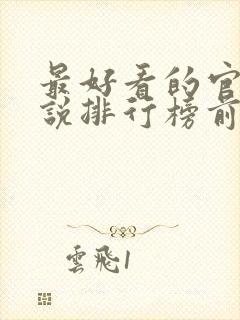 最好看的官
說排行榜前
雲飛1